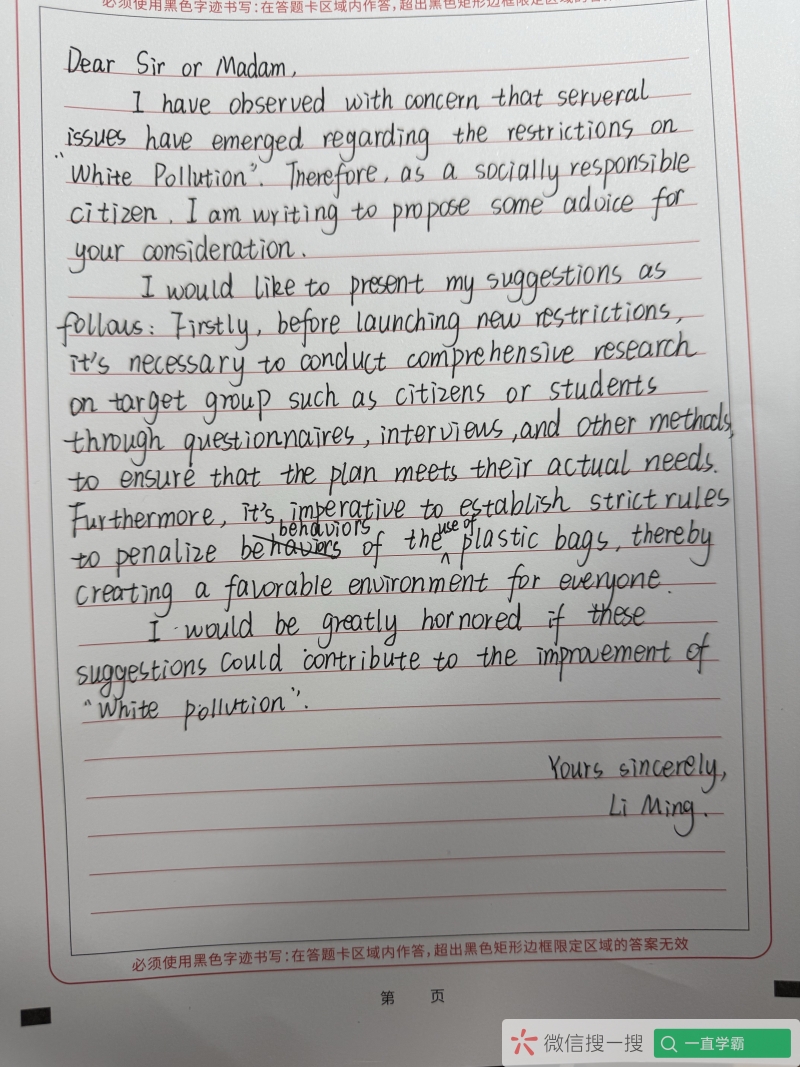 必须使用黑色字迹书写:在答题卡区域内作答,超出黑色矩形边框限定区域的答
Dear Sir or Madam,
I have observed with concern that serveral
issues have emerged regarding the restrictions on
"White Pollution". Therefore, as a socially responsible
citizen, I am writing to propose some advice for
your consideration.
I would like to present my suggestions as
follows: Firstly, before launching new restrictions,
it's necessary to conduct comprehensive research
on target group such as citizens or students
through questionnaires, interviews, and other methods,
to ensure that the plan meets their actual needs.
Furthermore, it's imperative to establish strict rules
to penalize behaviors of the use of plastic bags, thereby
creating a favorable environment for everyone.
I would be greatly hornored if these
suggestions could contribute to the improvement of
"White pollution".
Yours sincerely,
Li Ming.
必须使用黑色字迹书写:在答题卡区域内作答,超出黑色矩形边框限定区域的答案无效
第 页
微信搜一搜 一直学霸